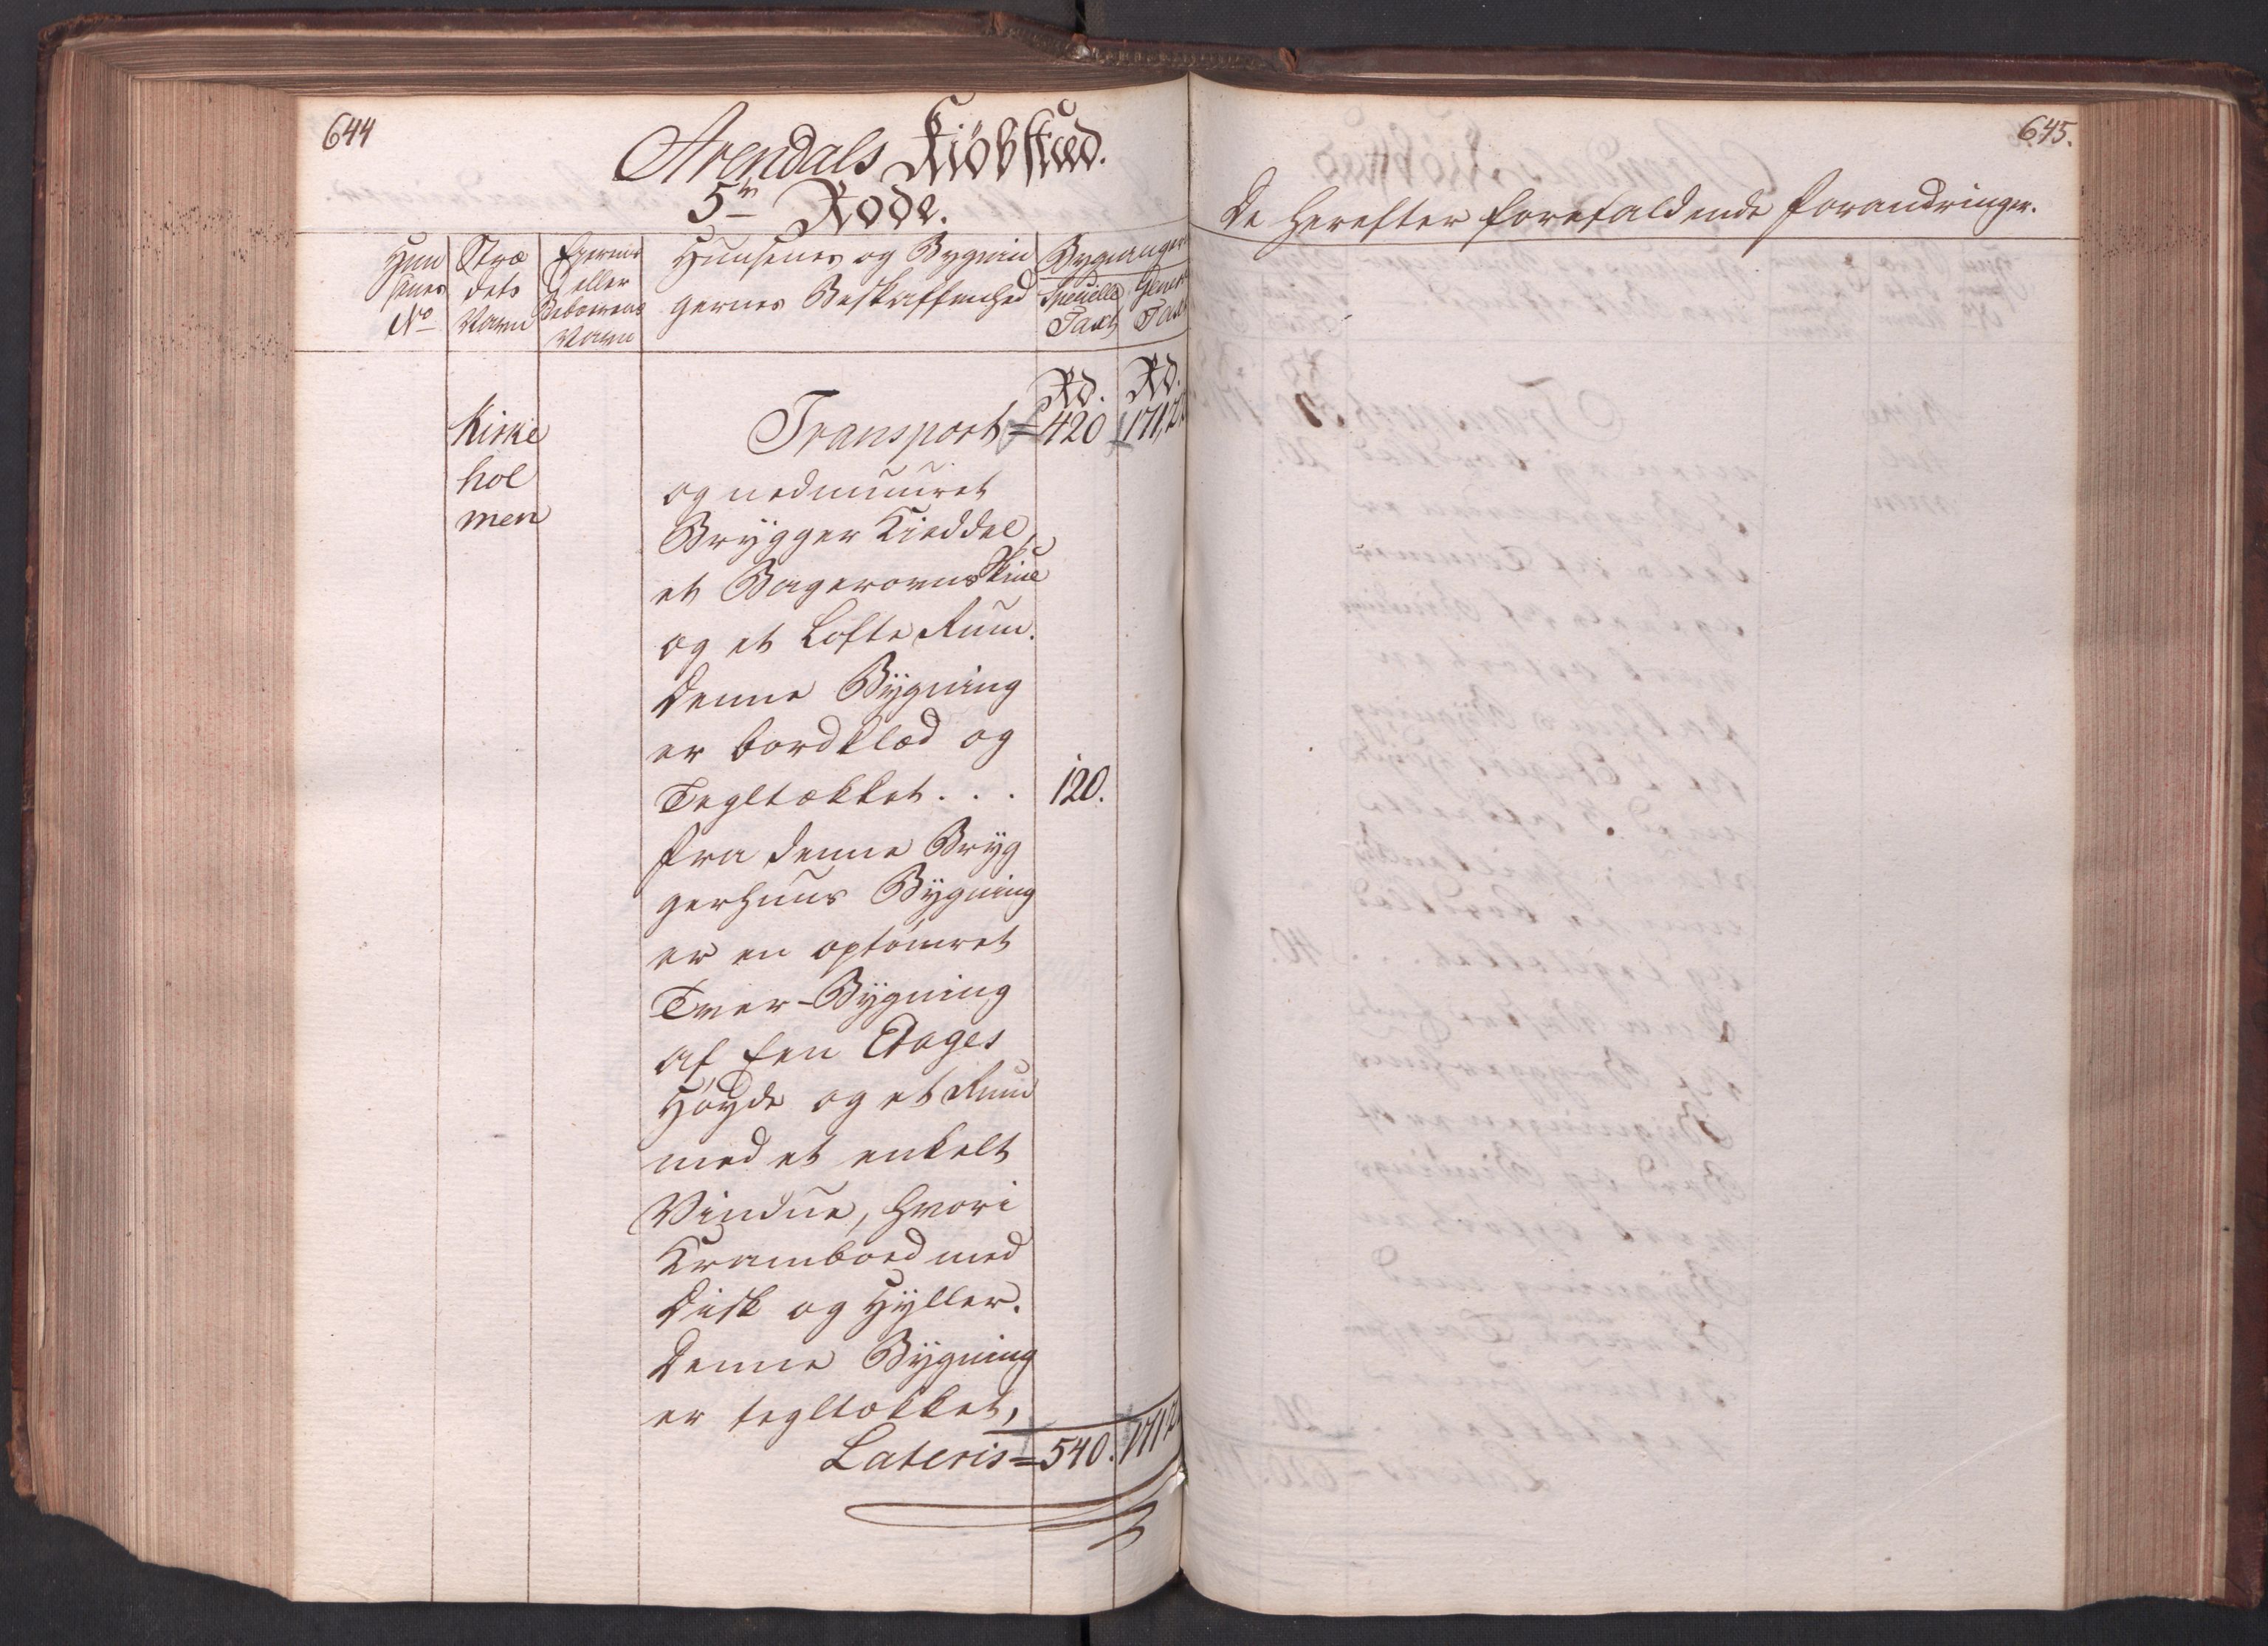 644
Arendals Kiöbstæd.
5te Rode.
Huu
senes
No
Stræ
dets
Navn
Eyerens
eller
Beboerens
Navn
Huusenes og Bygnin
gernes Beskaffenhed
Bygninger
Specielle
Taxt
Rd.
Rd.
Kirke
hol
men
Transport = 420
og nedmuuret
Brÿgger Kieddel,
et Bagerovns Skuue
og et Lofte Rum.
Denne Bÿgning
er bordklæd og
Tegltækket . . . 120.
Fra denne Brÿg
gerhuus Bÿgning
er en optömret
Tver-Bÿgning
af Een Etages
Höyde og et Rum
med et enkelt
Vindue, hvori
Kramboed med
Disk og Hÿller.
Denne Bÿgning
er tegltækket,
Lateris = 540.
645.
De herefter forefaldende Forandringer.